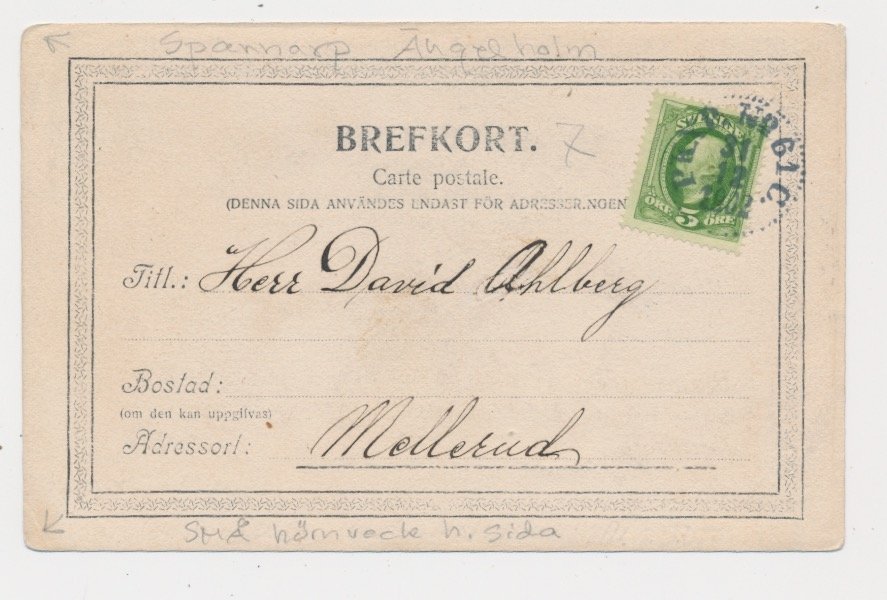 Spannarp Ängelholm
BREFKORT. 7
Carte postale.
(DENNA SIDA ANVÄNDES ENDAST FÖR ADRESSERINGEN
SVERIGE
ÖRE 5 ÖRE
No 61 C
31
12
1902
Titl.: Herr David Ahlberg
Bostad:
(om den kan uppgifvas)
Adressort: Mellerud
små hörnveck h. sida